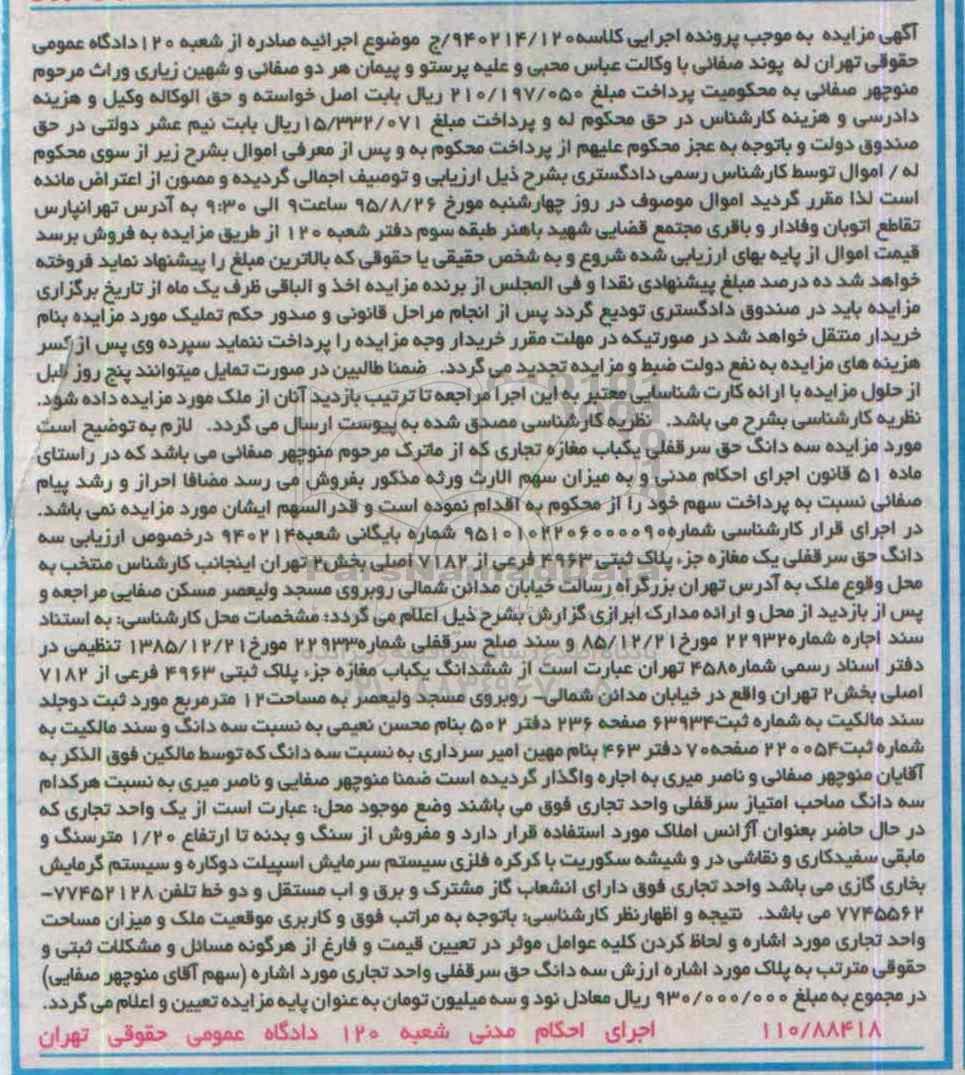 آگهی مزایده به موجب پرونده اجرایی کلاسه۹۴۰۲۱۴/۱۲۰/ج موضوع اجرائیه صادره از شعبه ۱۲۰دادگاه عمومی
حقوقی تهران له پوند صفائی با وکالت عباس محبی و علیه پرستو و پیمان هر دو صفائی و شهین زیاری وراث مرحوم
منوچهر صفائی به محکومیت پرداخت مبلغ ۲۱۰/۱۹۷/۰۵۰ ریال بابت اصل خواسته و حق الوکاله وکیل و هزینه
دادرسی و هزینه کارشناس در حق محکوم له و پرداخت مبلغ ۱۵/۳۳۲/۰۷۱ریال بابت نیم عشر دولتی در حق
صندوق دولت و باتوجه به عجز محکوم علیهم از پرداخت محکوم به و پس از معرفی اموال بشرح زیر از سوی محکوم
له / اموال توسط کارشناس رسمی دادگستری بشرح ذیل ارزیابی و توصیف اجمالی گردیده و مصون از اعتراض مانده
است لذا مقرر گردید اموال موصوف در روز چهارشنبه مورخ ۹۵/۸/۲۶ ساعت۹ الی ۹:۳۰ به آدرس تهرانپارس
تقاطع اتوبان وفادار و باقری مجتمع قضایی شهید باهنر طبقه سوم دفتر شعبه ۱۲۰ از طریق مزایده به فروش برسد
قیمت اموال از پایه بهای ارزیابی شده شروع و به شخص حقیقی یا حقوقی که بالاترین مبلغ را پیشنهاد نماید فروخته
خواهد شد ده درصد مبلغ پیشنهادی نقدا و فی المجلس از برنده مزایده اخذ و الباقی ظرف یک ماه از تاریخ برگزاری
مزایده باید در صندوق دادگستری تودیع گردد پس از انجام مراحل قانونی و صدور حکم تملیک مورد مزایده بنام
خریدار منتقل خواهد شد در صورتیکه در مهلت مقرر خریدار وجه مزایده را پرداخت ننماید سپرده وی پس از کسر
هزینه های مزایده به نفع دولت ضبط و مزایده تجدید می گردد. ضمنا طالبین در صورت تمایل میتوانند پنج روز قبل
از حلول مزایده با ارائه کارت شناسایی معتبر به این اجرا مراجعه تا ترتیب بازدید آنان از ملک مورد مزایده داده شود.
نظریه کارشناسی بشرح می باشد. نظریه کارشناسی مصدق شده به پیوست ارسال می گردد. لازم به توضیح است
مورد مزایده سه دانگ حق سرقفلی یکباب مغازه تجاری که از ماترک مرحوم منوچهر صفائی می باشد که در راستای
ماده ۵۱ قانون اجرای احکام مدنی و به میزان سهم الارث ورثه مذکور بفروش می رسد مضافا احراز و رشد پیام
صفائی نسبت به پرداخت سهم خود را از محکوم به اقدام نموده است و قدرالسهم ایشان مورد مزایده نمی باشد.
در اجرای قرار کارشناسی شماره۹۵۱۰۱۰۲۲۰۶۰۰۰۰۰۹۰ شماره بایگانی شعبه۹۴۰۲۱۴ درخصوص ارزیابی سه
دانگ حق سرقفلی یک مغازه جزء پلاک ثبتی ۴۹۶۳ فرعی از ۷۱۸۲ اصلی بخش۲ تهران اینجانب کارشناس منتخب به
محل وقوع ملک به آدرس تهران بزرگراه رسالت خیابان مدائن شمالی روبروی مسجد ولیعصر مسکن صفایی مراجعه و
پس از بازدید از محل و ارائه مدارک ابرازی گزارش بشرح ذیل اعلام می گردد: مشخصات محل کارشناسی: به استناد
سند اجاره شماره۲۲۹۳۲ مورخ۸۵/۱۲/۲۱ و سند صلح سرقفلی شماره۲۲۹۳۳ مورخ۱۳۸۵/۱۲/۲۱ تنظیمی در
دفتر اسناد رسمی شماره۴۵۸ تهران عبارت است از ششدانگ یکباب مغازه جزء پلاک ثبتی ۴۹۶۳ فرعی از ۷۱۸۲
اصلی بخش۲ تهران واقع در خیابان مدائن شمالی- روبروی مسجد ولیعصر به مساحت۱۲ مترمربع مورد ثبت دوجلد
سند مالکیت به شماره ثبت۶۳۹۳۴ صفحه ۲۳۶ دفتر ۵۰۲ بنام محسن نعیمی به نسبت سه دانگ و سند مالکیت به
شماره ثبت۲۲۰۰۵۴ صفحه۷۰ دفتر ۴۶۳ بنام مهین امیر سرداری به نسبت سه دانگ که توسط مالکین فوق الذکر به
آقایان منوچهر صفائی و ناصر میری به اجاره واگذار گردیده است ضمنا منوچهر صفایی و ناصر میری به نسبت هرکدام
سه دانگ صاحب امتیاز سرقفلی واحد تجاری فوق می باشند وضع موجود محل: عبارت است از یک واحد تجاری که
در حال حاضر بعنوان آژانس املاک مورد استفاده قرار دارد و مفروش از سنگ و بدنه تا ارتفاع ۱/۲۰ مترسنگ و
مابقی سفیدکاری و نقاشی در و شیشه سکوریت با کرکره فلزی سیستم سرمایش اسپیلت دوکاره و سیستم گرمایش
بخاری گازی می باشد واحد تجاری فوق دارای انشعاب گاز مشترک و برق و اب مستقل و دو خط تلفن ۷۷۴۵۲۱۲۸-
۷۷۴۵۵۶۲ می باشد. نتیجه و اظهارنظر کارشناسی: باتوجه به مراتب فوق و کاربری موقعیت ملک و میزان مساحت
واحد تجاری مورد اشاره و لحاظ کردن کلیه عوامل موثر در تعیین قیمت و فارغ از هرگونه مسائل و مشکلات ثبتی و
حقوقی مترتب به پلاک مورد اشاره ارزش سه دانگ حق سرقفلی واحد تجاری مورد اشاره (سهم آقای منوچهر صفایی)
در مجموع به مبلغ ۹۳۰/۰۰۰/۰۰۰ ریال معادل نود و سه میلیون تومان به عنوان پایه مزایده تعیین و اعلام می گردد.
۱۱۰/۸۸۴۱۸ اجرای احکام مدنی شعبه ۱۲۰ دادگاه عمومی حقوقی تهران